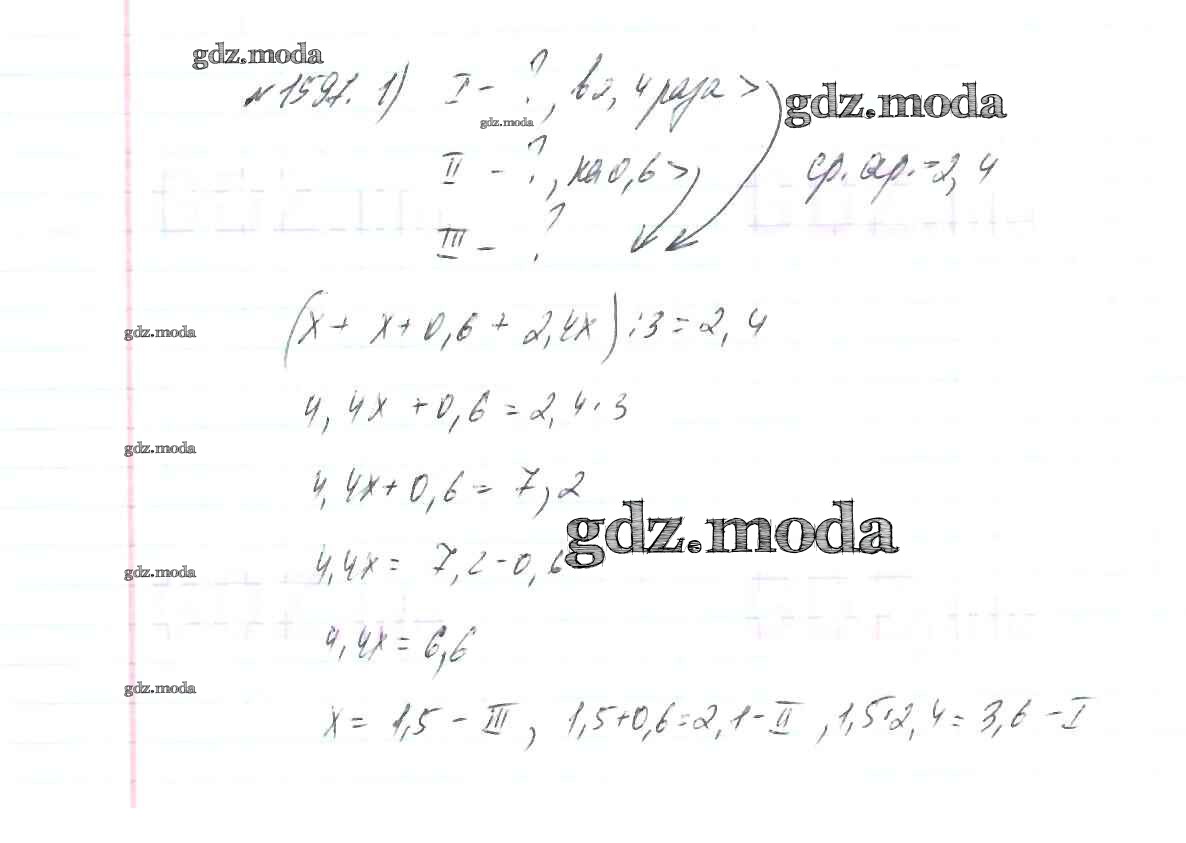 gdz.moda
№1597. 1) I - ?, в 2,4 раза >
gdz.moda
gdz.moda
II - ?, на 0,6 >,
ср. ар. = 2,4
III - ?
(x + x + 0,6 + 2,4x) : 3 = 2,4
gdz.moda
4,4x + 0,6 = 2,4 · 3
gdz.moda
4,4x + 0,6 = 7,2
gdz.moda
4,4x = 7,2 - 0,6
gdz.moda
4,4x = 6,6
gdz.moda
x = 1,5 - III, 1,5 + 0,6 = 2,1 - II, 1,5 · 2,4 = 3,6 - I